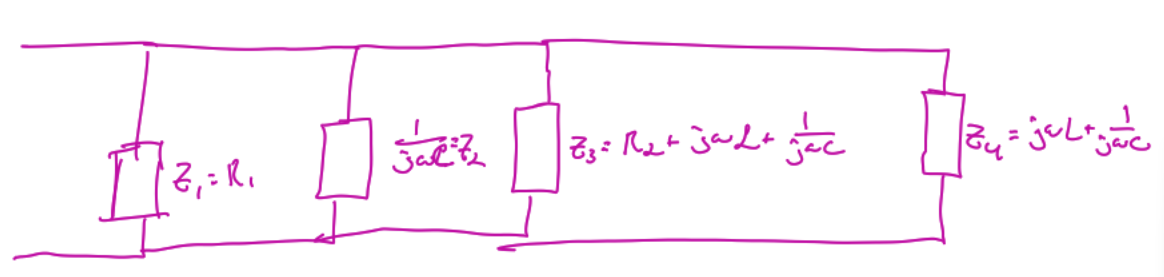 Z₁ = R₁
1/jωC = Z₂
Z₃ = R₂ + jωL + 1/jωC
Z₄ = jωL + 1/jωC